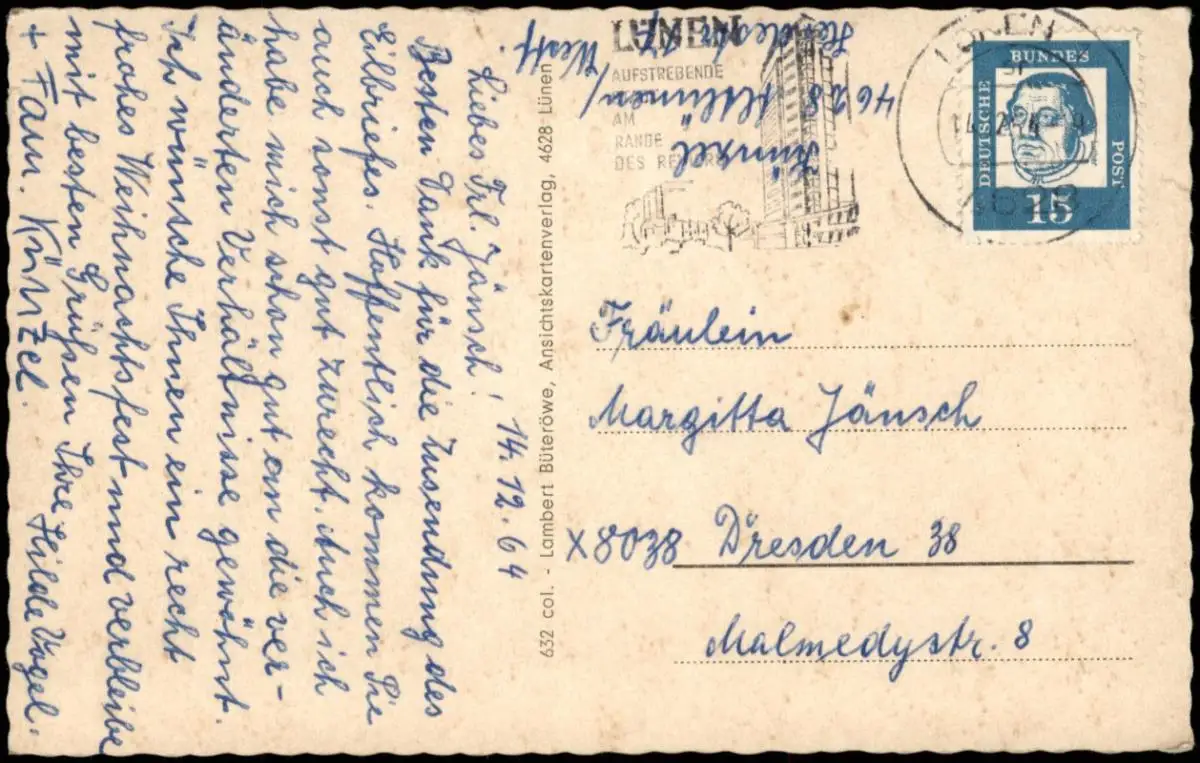 Liebes Frl. Jänsch! 14.12.64
Besten Dank für die Zusendung des
Eilbriefes. Hoffentlich kommen Sie
auch sonst gut zurecht. Auch ich
habe mich schon gut an die ver-
änderten Verhältnisse gewöhnt.
Ich wünsche Ihnen ein recht
frohes Weihnachtsfest und verbleibe
mit besten Grüßen Ihre Hilde Vogel.
+ Fam. Künzel.
632 col. - Lambert Büteröwe, Ansichtskartenverlag, 4628 Lünen
Künzel
4628 Altlünen/
Westf.
LÜNEN
AUFSTREBENDE
AM
RANDE
DES REVIERS
LÜNEN
DEUTSCHE
BUNDES
POST
15
Fräulein
Margitta Jänsch
X8038 Dresden 38
Malmedystr. 8